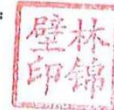 林锦
壁印